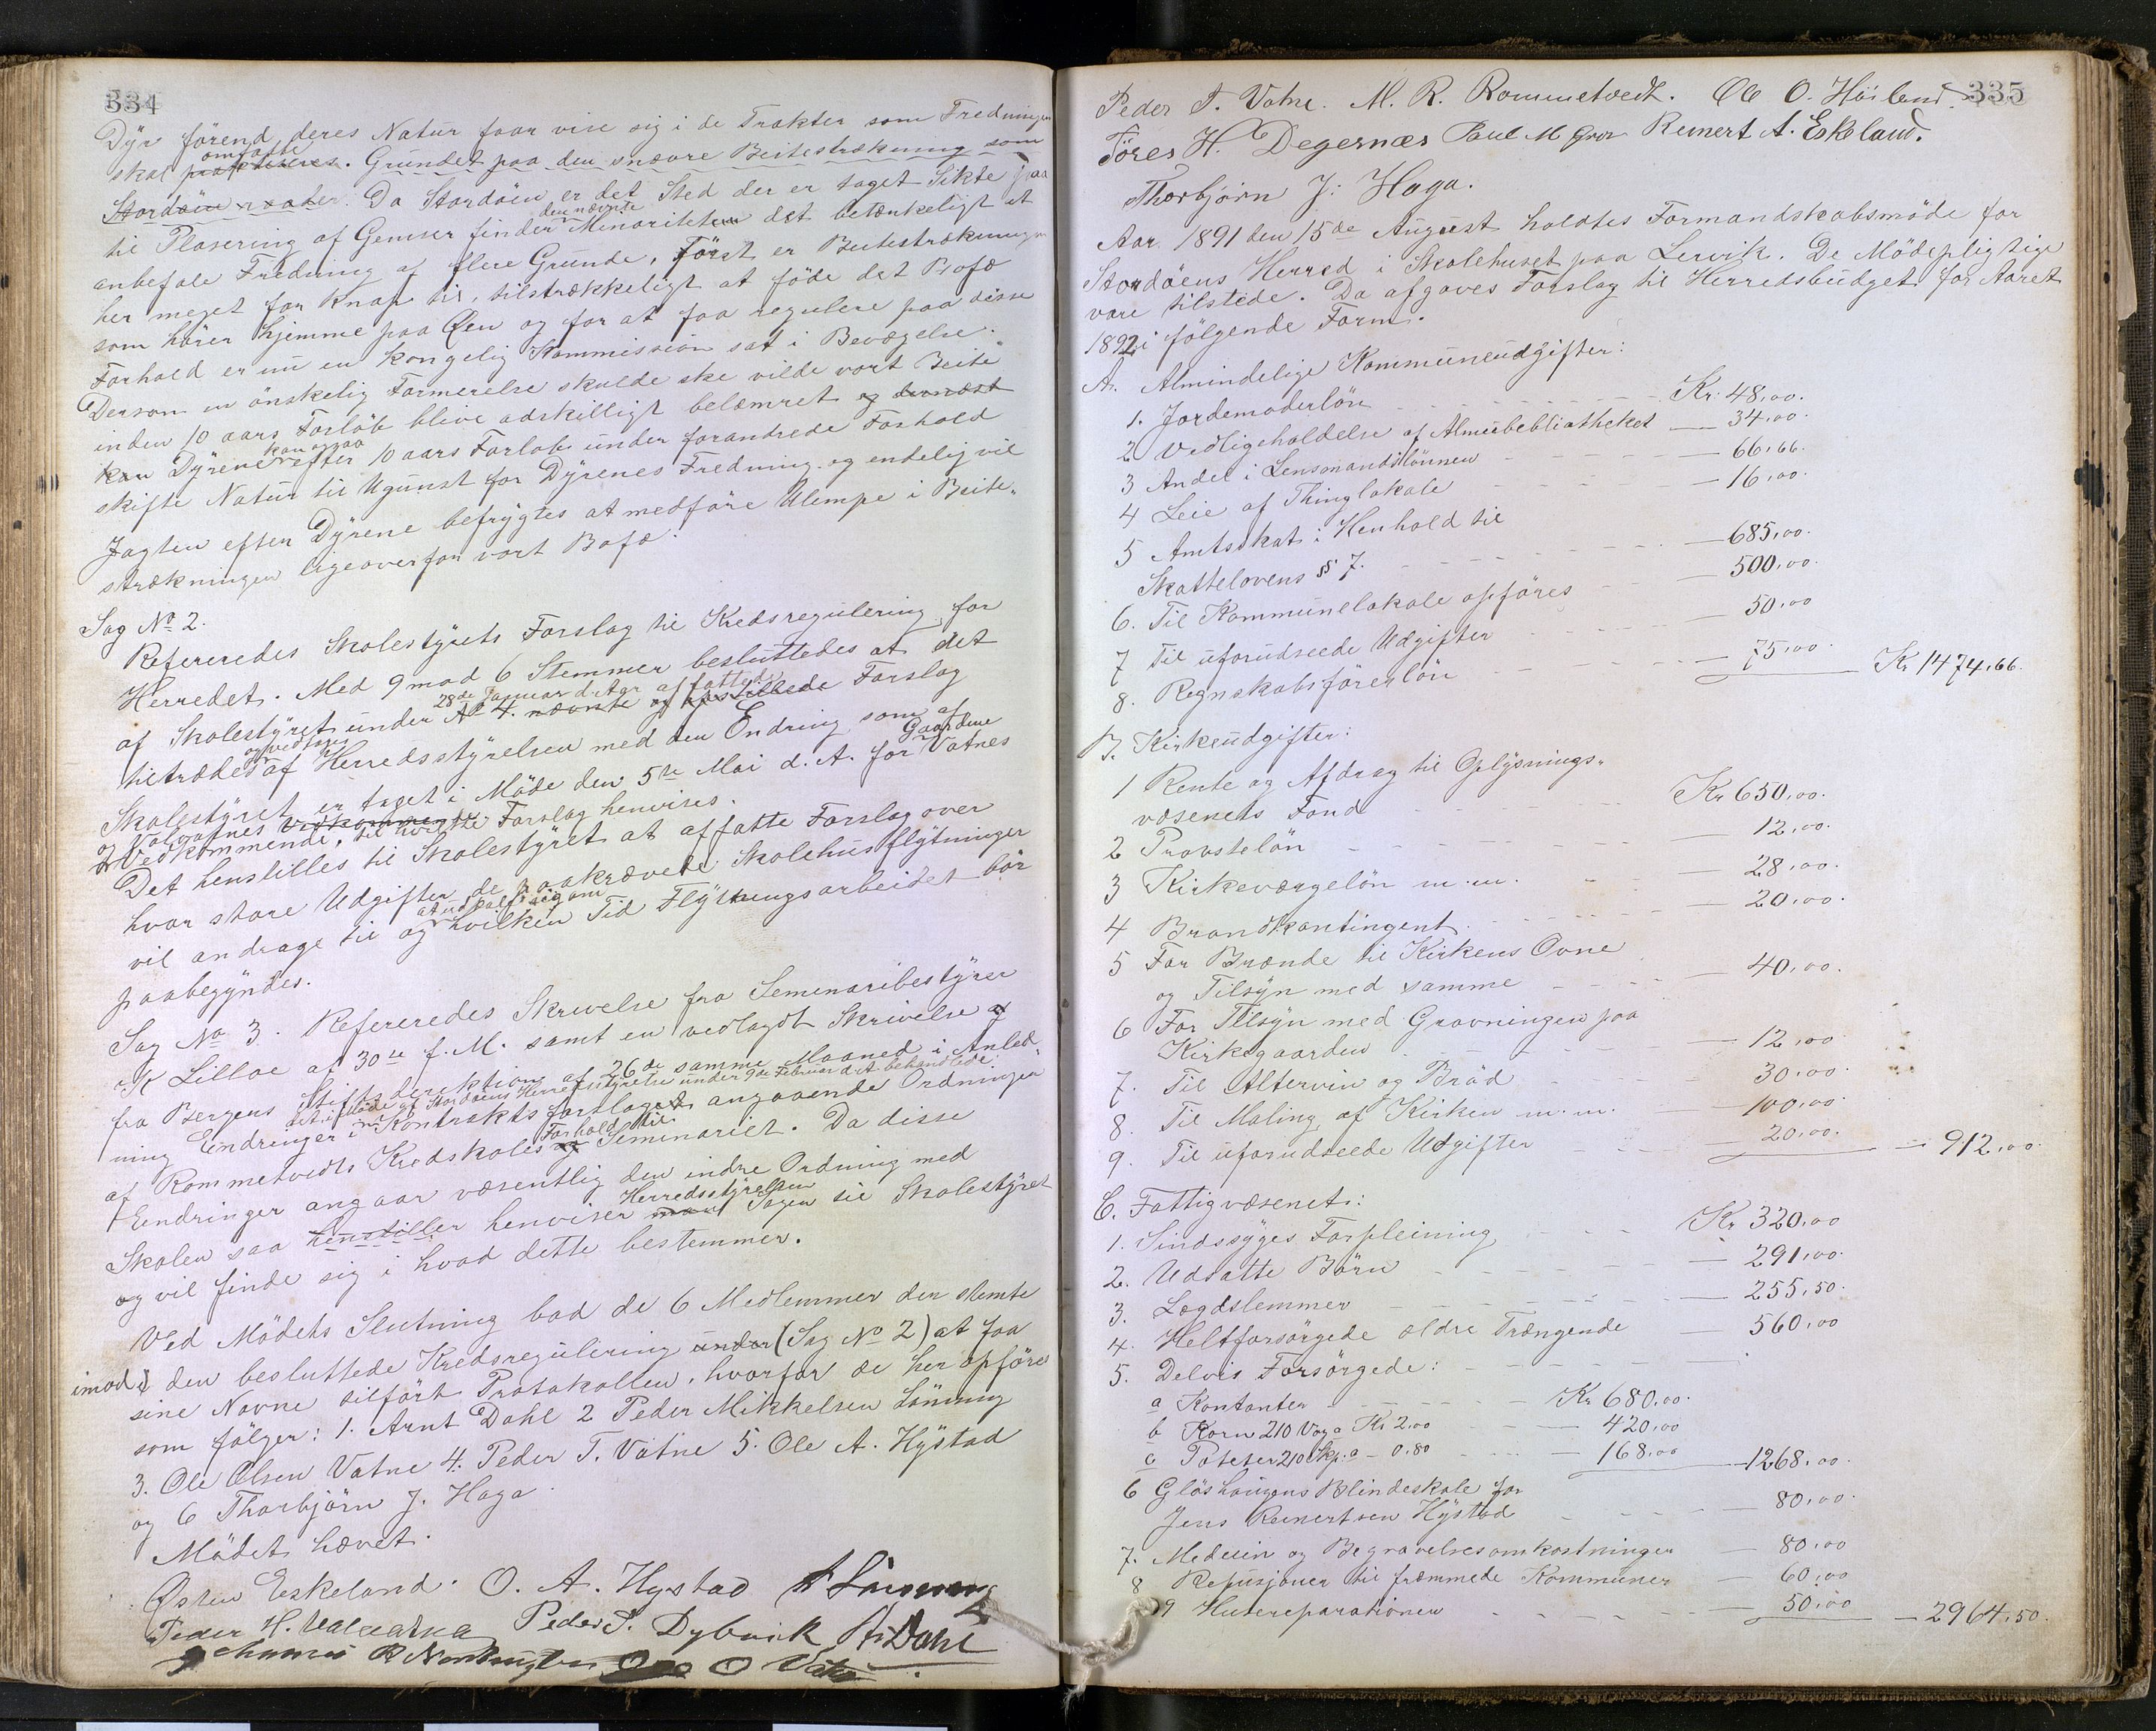 334
Dyr förend deres Natur faar vise sig i de Trakter som Fredningen
omfatte
skal praktiseres. Grundet paa den snævre Beitestrækning som
Stordöen raader. Da Stordöen er det Sted der er taget Sikte paa
den nævnte
til Plasering af Gemser finder Minoriteten det betænkeligt at
anbefale Fredning af flere Grunde, Först er Beitestrækningen
her meget for Knap til, tilstrækkeligt at föde det Bofæ
som hörer hjemme paa Öen og for at faa regulere paa disse
Forhold er nu en kongelig Kommission sat i Bevægelse.
Derson en önskelig Formerelse skulde ske vilde vort Beite
inden 10 aars Forlöb blive adskilligt belæmret og dernæst
kan ogsaa
kan Dyrene efter 10 aars Forlöb under forandrede Forhold
skifte Natur til Ugunst for Dyrenes Fredning og endelig vil
Jagten efter Dyrene befrygtes at medföre Ulempe i Beite-
strækningen ligeoverfor vort Bofæ.
Sag No 2.
Refereredes Skolestyrets Forslag til Kredsregulering for
Herredet. Med 9 mod 6 Stemmer besluttedes at det
28de Januar d. Aar affattede
af Skolestyret under No 4. nævnte og opstillede Forslag
og vedtages
tiltrædes af Herredsstyrelsen med den Endring som af
Gaardene
Skolestyret er taget i Möde den 5te Mai d. A. for Vatnes
og Valvatnes Vedkommende
Vedkommende, til hvilke Forslag henvises.
Det henstilles til Skolestyret at affatte Forslag over
hvor store Udgifter de paakrævede Skolehusflytninger
at udtale sig om
vil andrage til og hvilken Tid Flytningsarbeidet bör
paabegyndes.
Sag No 3. Refereredes Skrivelse fra Seminaribestyrer
K Lilloe af 30te f. M. samt en vedlagdt Skrivelse af
fra Bergens Stiftsdirektion af 26de samme Maaned i Anled
det i Möde af Stordöens Herredsstyrelse under 9de Februar d. A. behandlede
ning Endringer i Kontraktsforslaget angaaende Ordningen
Forhold til
af Rommetvedts Kredskoles og Seminariet. Da disse
Eendringer angaar væsentlig den indre Ordning med
Herredsstyrelsen
Skolen saa henstiller henviser man Sagen til Skolestyret
og vil finde sig i hvad dette bestemmer.
Ved Mödets Slutning bad de 6 Medlemmer der stemte
imod den besluttede Kredsregulering under (Sag No 2) at faa
sine Navne tilfört Protokollen, hvorfor de her opföres
som fölger: 1. Arnt Dahl 2 Peder Mikkelsen Lönning
3. Ole Olsen Vatne 4. Peder T. Vatne 5. Ole A. Hystad
og 6 Thorbjörn J. Haga.
Mödet hævet.
Østen Eskeland. O. A. Hystad
Peder H. Valvatna Peder S. Dybwik A. Dahl
Ole O Vatne
335
Peder T. Vatne. M. R. Rommetvedt. Ole O. Höiland
Töres H. Degernæs Paul M Reinert A. Eskeland.
Thorbjörn J. Haga.
Aar 1891 den 15de August holdtes Formandskabsmöde for
Stordöens Herred i Skolehuset paa Lervik. De Mödepligtige
vare tilstede. Da afgaves Forslag til Herredsbudget for Aaret
1892 i fölgende Form.
A. Almindelige Kommuneudgifter:
1. Jordemoderlön Kr. 48,00.
2 Vedligeholdelse af Almuebebliotheket 34,00
3 Andel i Lensmandslönnen 66,66.
4 Leie af Thinglokale 16,00.
5 Amtsskat i Henhold til
Skattelovens §§ 7. 685,00.
6. Til Kommunelokale opföres 500,00.
7 Til uforudseede Udgifter 50,00
8. Regnskabsförerlön 75,00. Kr 1474,66.
B. Kirkeudgifter:
1 Rente og Afdrag til Oplysnings-
væsenets Fond Kr 650,00.
2 Provstelön 12,00.
3 Kirkeværgelön m. m. 28,00.
4 Brandkontingent 20,00.
5 For Brænde til Kirkens Ovne
og Tilsyn med samme 40,00.
6 For Tilsyn med Gravningen paa
Kirkegaarden 12,00
7. Til Altervin og Bröd 30,00.
8. Til Maling af Kirken m. m. 100,00.
9. Til uforudseede Udgifter 20,00. 912,00.
C. Fattigvæsenet:
1. Sindssyges Forpleining Kr 320,00
2. Udsatte Börn 291,00.
3. Lægdslemmer 255,50.
4. Heltforsörgede ældre Trængende 560,00
5. Delvis Forsörgede:
a Kontanter Kr 680,00.
b Korn 210 Vog a Kr 2,00 420,00
c Poteter 210 Skp. a 0,80 168,00 1268,00.
6 Glöshaugens Blindeskole for
Jens Reinertsen Hystad 80,00.
7. Medesin og Begravelsesomkostninger 80,00
8 Refusjoner til fræmmede Kommuner 60,00
9 Husereparationer 50,00 2964,50.